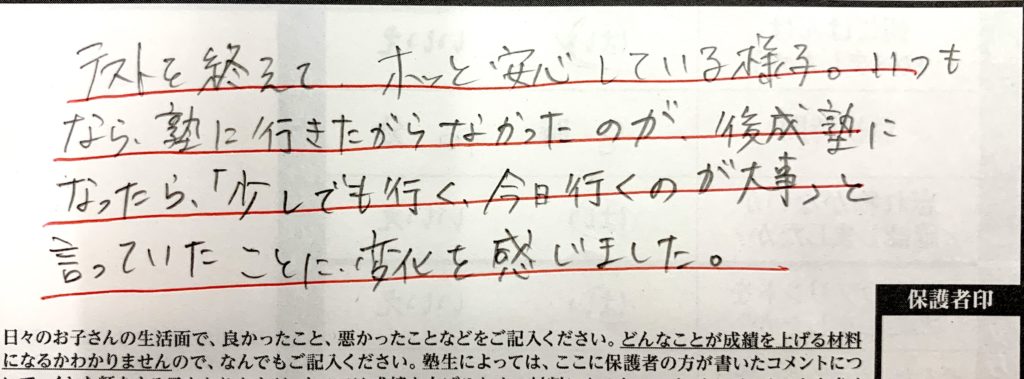 テストを終えて、ホッと安心している様子。いつも
なら、塾に行きたがらなかったのが、後成塾に
なったら、「少しでも行く、今日行くのが大事」と
言っていたことに、変化を感じました。
保護者印
日々のお子さんの生活面で、良かったこと、悪かったことなどをご記入ください。どんなことが成績を上げる材料
になるかわかりませんので、なんでもご記入ください。塾生によっては、ここに保護者の方が書いたコメントにつ